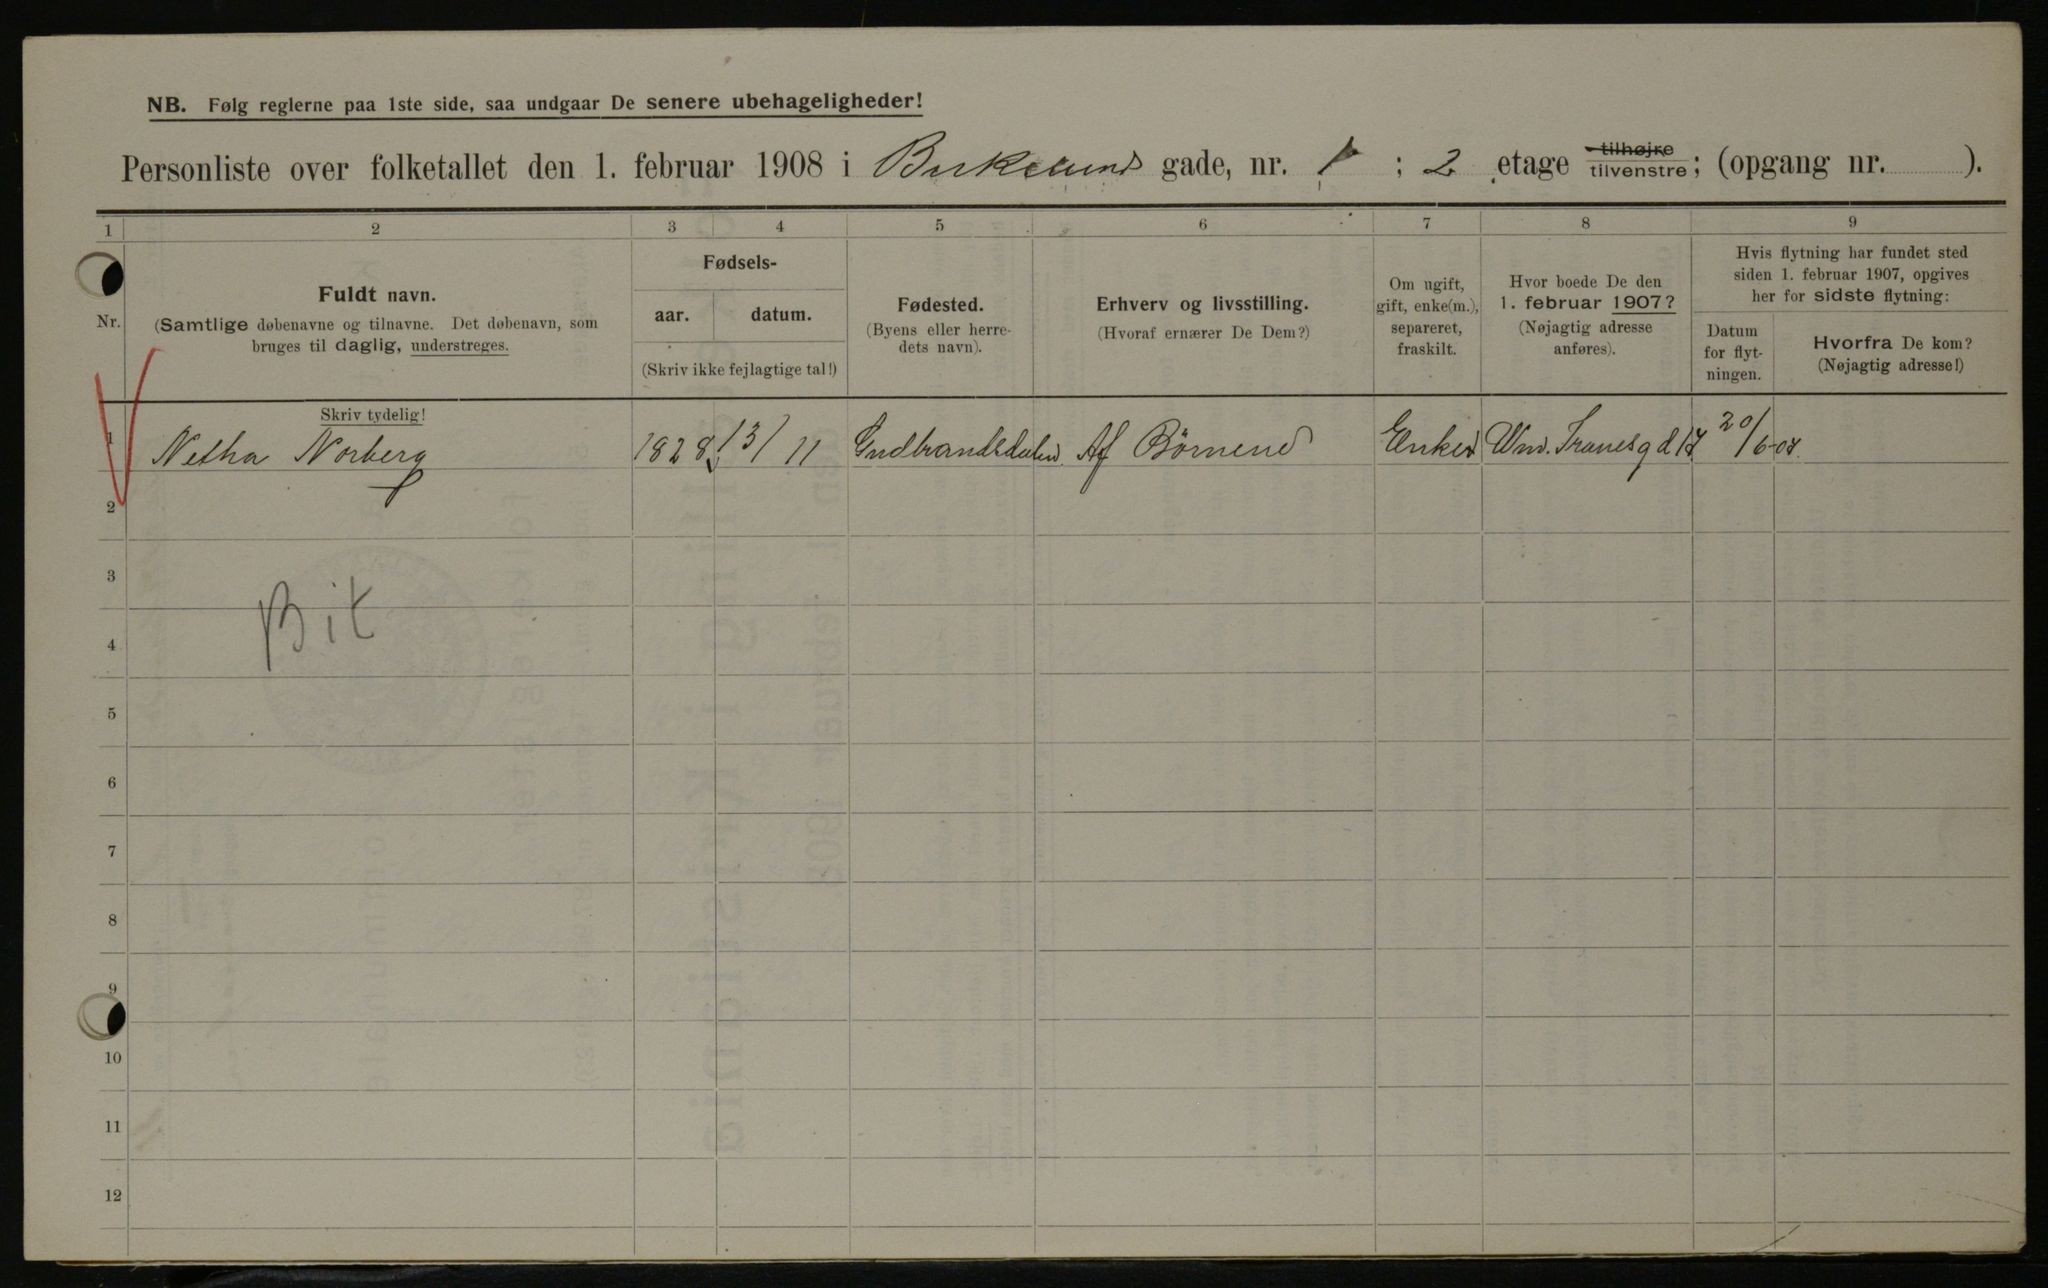 NB. Følg reglerne paa 1ste side, saa undgaar De senere ubehageligheder!
Personliste over folketallet den 1. februar 1908 i Birkelund gade, nr. 1 ; 2 etage tilhøjre tilvenstre; (opgang nr. ).
1 2 3 4 5 6 7 8 9
Nr.
Fuldt navn.
(Samtlige døbenavne og tilnavne. Det døbenavn, som
bruges til daglig, understreges.
Skriv tydelig!
Fødsels-
aar. datum.
(Skriv ikke fejlagtige tal!)
Fødested.
(Byens eller herre-
dets navn).
Erhverv og livsstilling.
(Hvoraf ernærer De Dem?)
Om ugift,
gift, enke(m.),
separeret,
fraskilt.
Hvor boede De den
1. februar 1907?
(Nøjagtig adresse
anføres).
Hvis flytning har fundet sted
siden 1. februar 1907, opgives
her for sidste flytning:
Datum
for flyt-
ningen.
Hvorfra De kom?
(Nøjagtig adresse!)
1 Netha Norberg 1828 13/11 Gudbrandsdalen Af Börnene Enke Wm. Tranesgd 17 20/6-07.
2
3
Bit
4
5
6
7
8
9
10
11
12